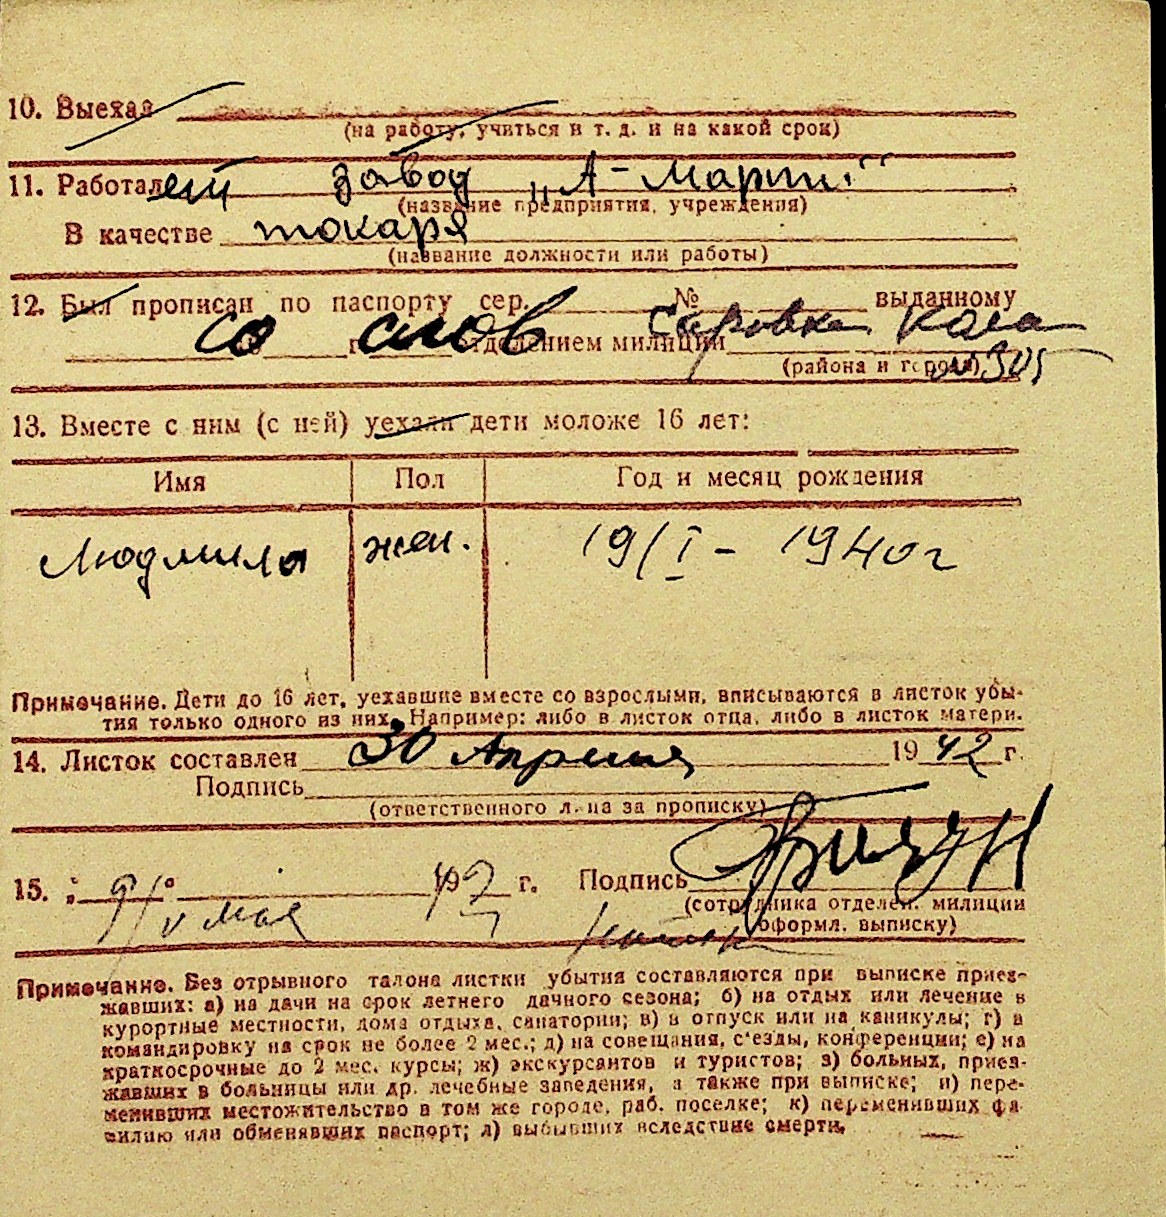 10. Выехал
(на работу, учиться и т. д. и на какой срок)
11. Работает завод „А-Марти"
(название предприятия, учреждения)
В качестве токаря
(название должности или работы)
12. Был прописан по паспорту сер. № выданному
со слов отделением милиции
(района и города)
13. Вместе с ним (с ней) уехали дети моложе 16 лет:
Имя Пол Год и месяц рождения
Людмила жен. 19/I - 1940 г
Примечание. Дети до 16 лет, уехавшие вместе со взрослыми, вписываются в листок убы-
тия только одного из них. Например: либо в листок отца, либо в листок матери.
14. Листок составлен 30 Апреля 1942 г.
Подпись
(ответственного лица за прописку)
15. 9/V мая 1942 г. Подпись
(сотрудника отделен. милиции
оформл. выписку)
Примечание. Без отрывного талона листки убытия составляются при выписке приез-
жавших: а) на дачи на срок летнего дачного сезона; б) на отдых или лечение в
курортные местности, дома отдыха, санатории; в) в отпуск или на каникулы; г) в
командировку на срок не более 2 мес.; д) на совещания, с'езды, конференции; е) на
краткосрочные до 2 мес. курсы; ж) экскурсантов и туристов; з) больных, приез-
жавших в больницы или др. лечебные заведения, а также при выписке; и) пере-
менивших местожительство в том же городе, раб. поселке; к) переменивших фа-
милию или обменявших паспорт; л) выбывших вследствие смерти.